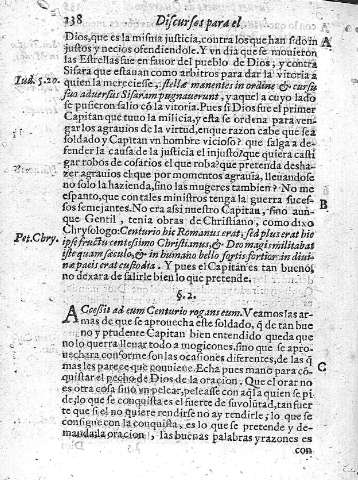 138 Discursos para el
Dios, que es la misma justicia, contra los que han sido in
justos y necios ofendiendole. Y vn dia que se mouieron
las Estrellas fue en fauor del pueblo de Dios; y contra
Sisara que estauan como arbitros para dar la vitoria a
quien la mereciesse, stellæ manentes in ordine & cursu
suo aduersus Sisaram pugnauerunt, y a aquel a cuyo lado
se pusieron salio cõ la vitoria. Pues si Dios fue el primer
Capitan que tuuo la milicia, y esta se ordena para ven-
gar los agrauios de la virtud, en que razon cabe que sea
soldado y Capitan vn hombre vicioso? que salga a de-
fender la causa de la justicia el injusto? que quiera casti
gar robos de cosarios el que roba? que pretenda desha-
zer agrauios el que por momentos agrauia, lleuandose
no solo la hazienda, sino las mugeres tambien? No me
espanto, que con tales ministros tenga la guerra suces-
sos semejantes. No era assi nuestro Capitan, sino aun-
que Gentil, tenia obras de Christiano, como dixo
Chrysologo: Centurio hic Romanus erat; sed plus erat hic
ipse fructu centessimo Christianus, & Deo magis militabat
iste quam sæculo, & in humano bello fortis fortior in diui-
na pacis erat custodia. Y pues el Capitan es tan bueno,
no dexara de salirle bien lo que pretende.
§. 2.
ACcessit ad eum Centurio rogans eum. Veamos las ar-
mas de que se aprouecha este soldado, q̃ de tan bue
no y prudente Capitan bien entendido queda que
no lo querra lleuar todo a mogicones, sino que se apro-
uechara conforme son las ocasiones diferentes, de las q̃
mas les parece que conuiene. Echa pues mano para cõ-
quistar el pecho de Dios de la oracion. Que el orar no
es otra cosa sino vn pelear, pelease con aq̃l a quien se pi
de, lo que se conquista es el fuerte de su volũtad, tan fuer
te que si el no quiere rendirse no ay rendirle; lo que se
consigue con la conquista, es lo que se pretende y de-
manda la oracion, las buenas palabras y razones es
con
Iud. 5.20.
Pet. Chry.
A
B
C